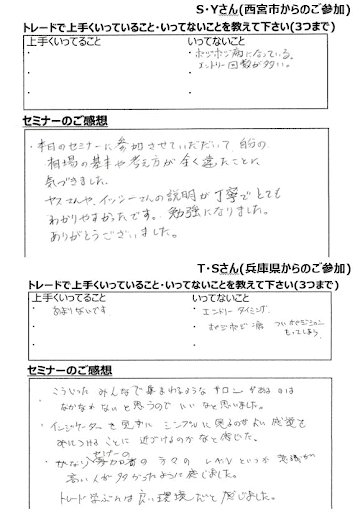 S・Yさん(西宮市からのご参加)
トレードで上手くいっていること・いってないことを教えて下さい(3つまで)
上手くいってること いってないこと
・ ・ポジポジ病になっている。
・ ・エントリー回数が多い。
・ ・
セミナーのご感想
・本日のセミナーに参加させていただいて 自分の
相場の基本や考え方が全く違たことに
気づきました。
ヤスさんや、イッシーさんの説明が丁寧でとても
わかりやすかったです。勉強になりました。
ありがとうございました。
T・Sさん(兵庫県からのご参加)
トレードで上手くいっていること・いってないことを教えて下さい(3つまで)
上手くいってること いってないこと
・あまりないです ・エントリータイミング
・ ・ポジポジ病 ついポジション
もってしまう
・ ・
セミナーのご感想
・こういった みんなで集まれるような サロンがあるのは
なかなかないと思うので いいなと思いました。
・インジケーターを見すに シンプルに見るのせよい感覚を
みにつけることに 近づけるのかなと感じた。
・かなり セミナーの参加者の方々の レベルというか 意識が
高い人が多かったように感じました。
トレード学ぶのは良い環境だと感じました。